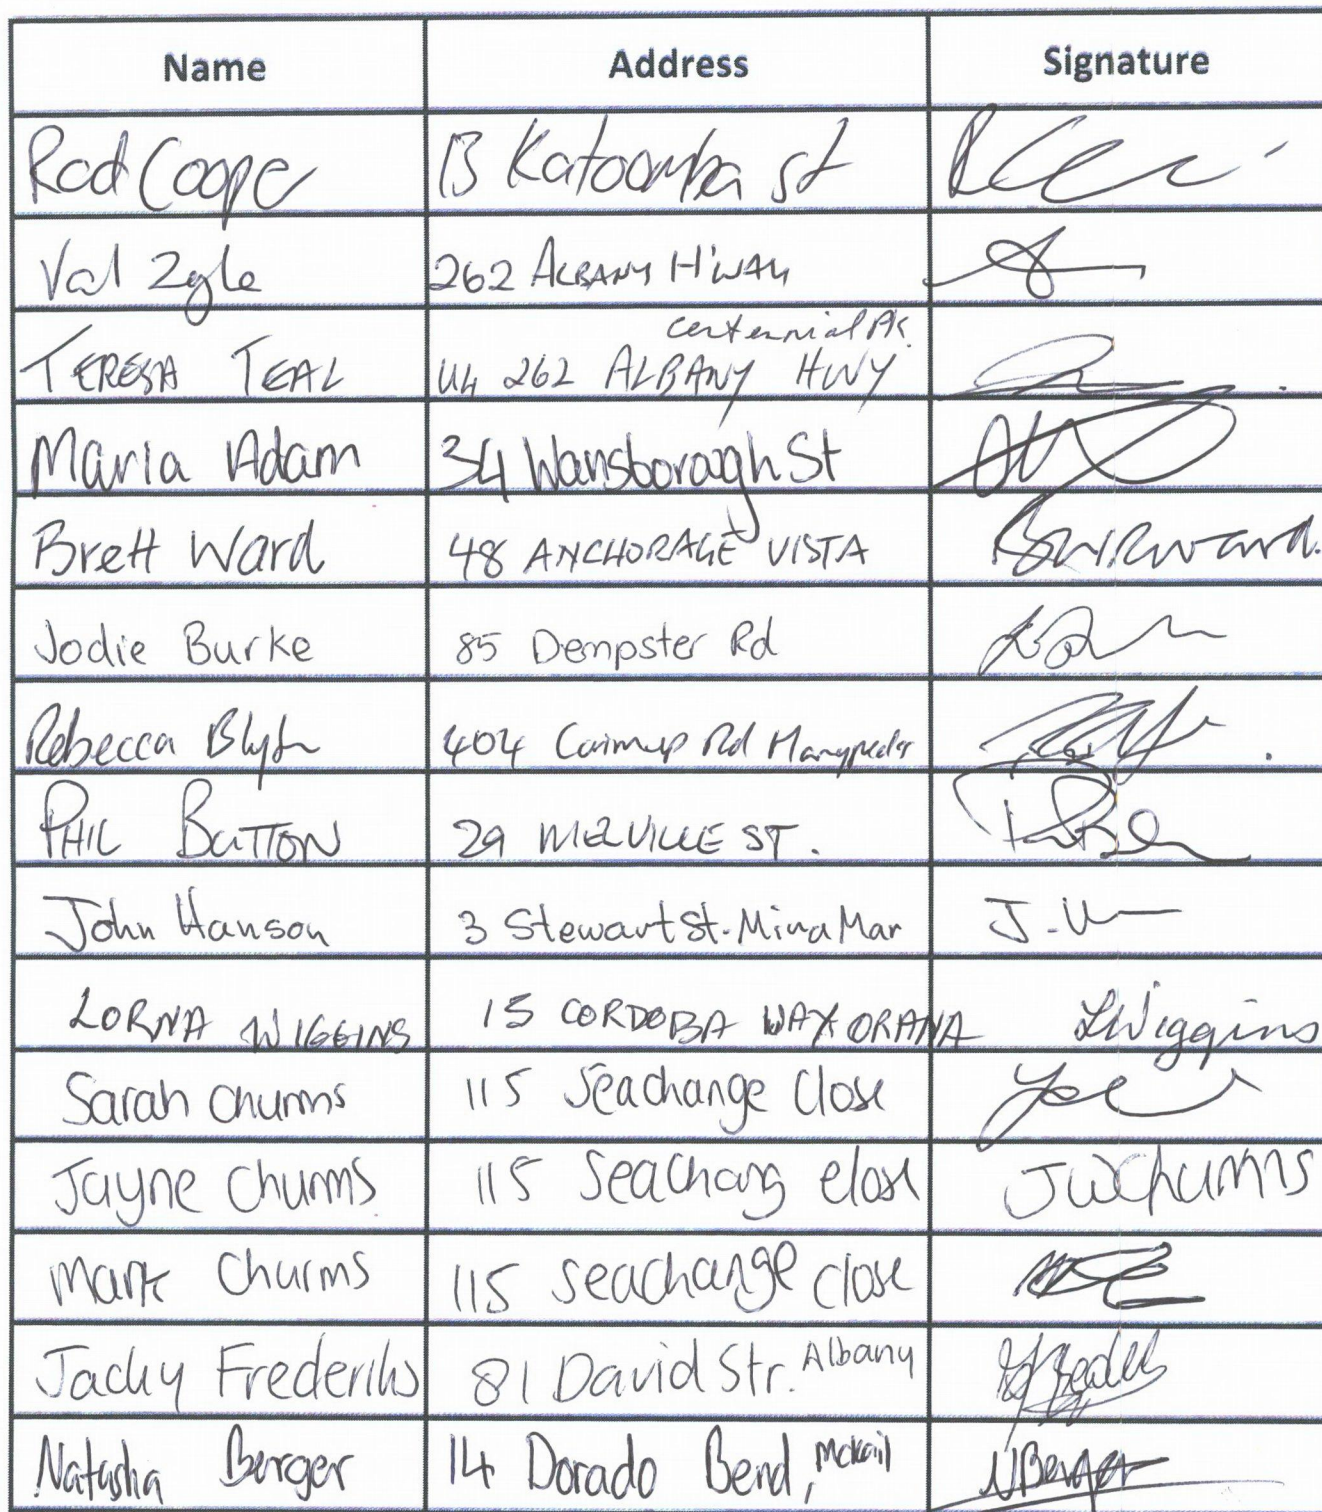 Name Address Signature
Rod Cooper 13 Katoomba st
Val Zyle 262 ALBANY H'WAY
TERESA TEAL U4 262 ALBANY HWY centennial Pk.
Maria Adam 34 Wansborough St
Brett Ward 48 ANCHORAGE VISTA
Jodie Burke 85 Dempster Rd
Rebecca Blyth 404 Rd Manypeaks
PHIL BUTTON 29 MELVILLE ST.
John Hanson 3 Stewart St. Mira Mar J.
LORNA WIGGINS 15 CORDOBA WAY ORANA LWiggins
Sarah Churms 115 Seachange Close
Jayne Churms. 115 Seachang close JWChurms
Mark Churms 115 seachange close
Jacky Frederiks 81 David Str. Albany
Natasha Berger 14 Dorado Bend, Mckail NBerger